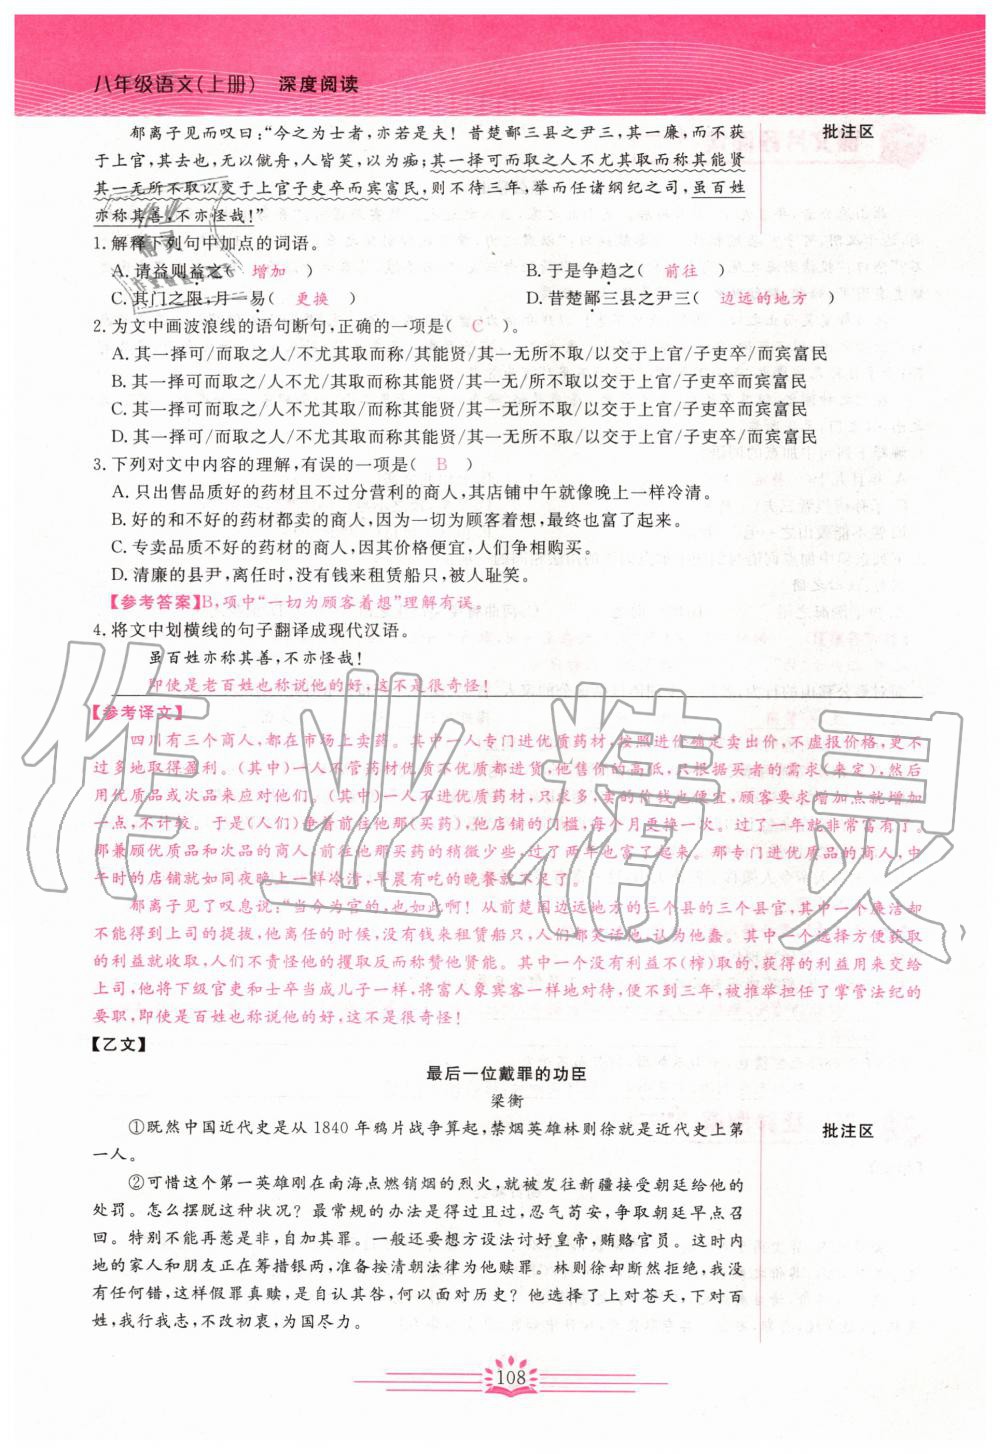 八年级语文(上册) 深度阅读
郁离子见而叹曰:“今之为士者,亦若是夫!昔楚鄙三县之尹三,其一廉,而不获
于上官,其去也,无以僦舟,人皆笑,以为痴;其一择可而取之人不尤其取而称其能贤
其一无所不取以交于上官子吏卒而宾富民,则不待三年,举而任诸纲纪之司,虽百姓
亦称其善,不亦怪哉!”
批注区
1.解释下列句中加点的词语。
A.请益则益之( 增加 ) B.于是争趋之( 前往 )
C.其门之限,月一易( 更换 ) D.昔楚鄙三县之尹三( 边远的地方 )
2.为文中画波浪线的语句断句,正确的一项是( C )。
A.其一择可/而取之人/不尤其取而称/其能贤/其一无所不取/以交于上官/子吏卒/而宾富民
B.其一择可而取之/人不尤/其取而称其能贤/其一无/所不取以交于上官/子吏卒而宾富民
C.其一择可而取之/人不尤其取而称其能贤/其一无所不取/以交于上官/子吏卒而宾富民
D.其一择可而取之/人不尤其取/而称其能贤/其一/无所不取以交于上官子/吏卒而宾富民
3.下列对文中内容的理解,有误的一项是( B )
A.只出售品质好的药材且不过分营利的商人,其店铺中午就像晚上一样冷清。
B.好的和不好的药材都卖的商人,因为一切为顾客着想,最终也富了起来。
C.专卖品质不好的药材的商人,因其价格便宜,人们争相购买。
D.清廉的县尹,离任时,没有钱来租赁船只,被人耻笑。
【参考答案】B,项中“一切为顾客着想”理解有误。
4.将文中划横线的句子翻译成现代汉语。
虽百姓亦称其善,不亦怪哉!
即使是老百姓也称说他的好,这不是很奇怪!
【参考译文】
四川有三个商人,都在市场上卖药。其中一人专门进优质药材,按照进价确定卖出价,不虚报价格,更不
过多地取得盈利。(其中)一人不管药材优质不优质都进货,他售价的高低,只根据买者的需求(来定),然后
用优质品或次品来应对他们。(其中)一人不进优质药材,只求多,卖的价钱也便宜,顾客要求增加点就增加
一点,不计较。于是(人们)争着前往他那(买药),他店铺的门槛,每个月更换一次。过了一年就非常富有了。
那兼顾优质品和次品的商人,前往他那买药的稍微少些,过了两年也富了起来。那专门进优质品的商人,中
午时的店铺就如同夜晚上一样冷清,早晨有吃的晚餐就不足了。
郁离子见了叹息说:“当今为官的,也如此啊!从前楚国边远地方的三个县的三个县官,其中一个廉洁却
不能得到上司的提拔,他离任的时候,没有钱来租赁船只,人们都笑话他,认为他蠢。其中一个选择方便获取
的利益就收取,人们不责怪他的攫取反而称赞他贤能。其中一个没有利益不(榨)取的,获得的利益用来交给
上司,他将下级官吏和士卒当成儿子一样,将富人象宾客一样地对待,便不到三年,被推举担任了掌管法纪的
要职,即使是百姓也称说他的好,这不是很奇怪!
【乙文】
最后一位戴罪的功臣
梁衡
①既然中国近代史是从1840年鸦片战争算起,禁烟英雄林则徐就是近代史上第
一人。
批注区
②可惜这个第一英雄刚在南海点燃销烟的烈火,就被发往新疆接受朝廷给他的
处罚。怎么摆脱这种状况?最常规的办法是得过且过,忍气苟安,争取朝廷早点召
回。特别不能再惹是非,自加其罪。一般还要想方设法讨好皇帝,贿赂官员。这时内
地的家人和朋友正在筹措银两,准备按清朝法律为他赎罪。林则徐却断然拒绝,我没
有任何错,这样假罪真赎,是自认其咎,何以面对历史?他选择了上对苍天,下对百
姓,我行我志,不改初衷,为国尽力。
108
作业精灵